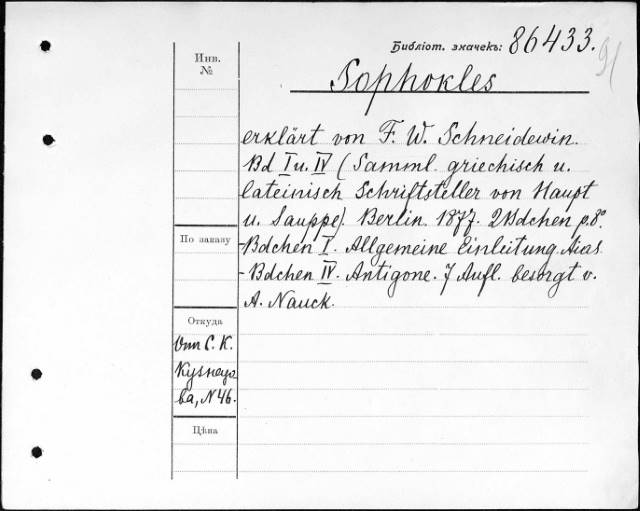 Библіот. значекъ: 86433.
91
Инв.
№
Sophokles
erklärt von F. W. Schneidewin.
Bd I u. IV (Samml. griechisch u.
lateinisch Schriftsteller von Haupt
u. Sauppe). Berlin. 1877. 2 Bdchen p. 8°.
По заказу
- Bdchen I. Allgemeine Einleitung. Aias.
- Bdchen IV. Antigone. 7 Aufl. besorgt v.
A. Nauck.
Откуда
Отъ С. К.
Кузнецо
ва, N 46.
Цѣна